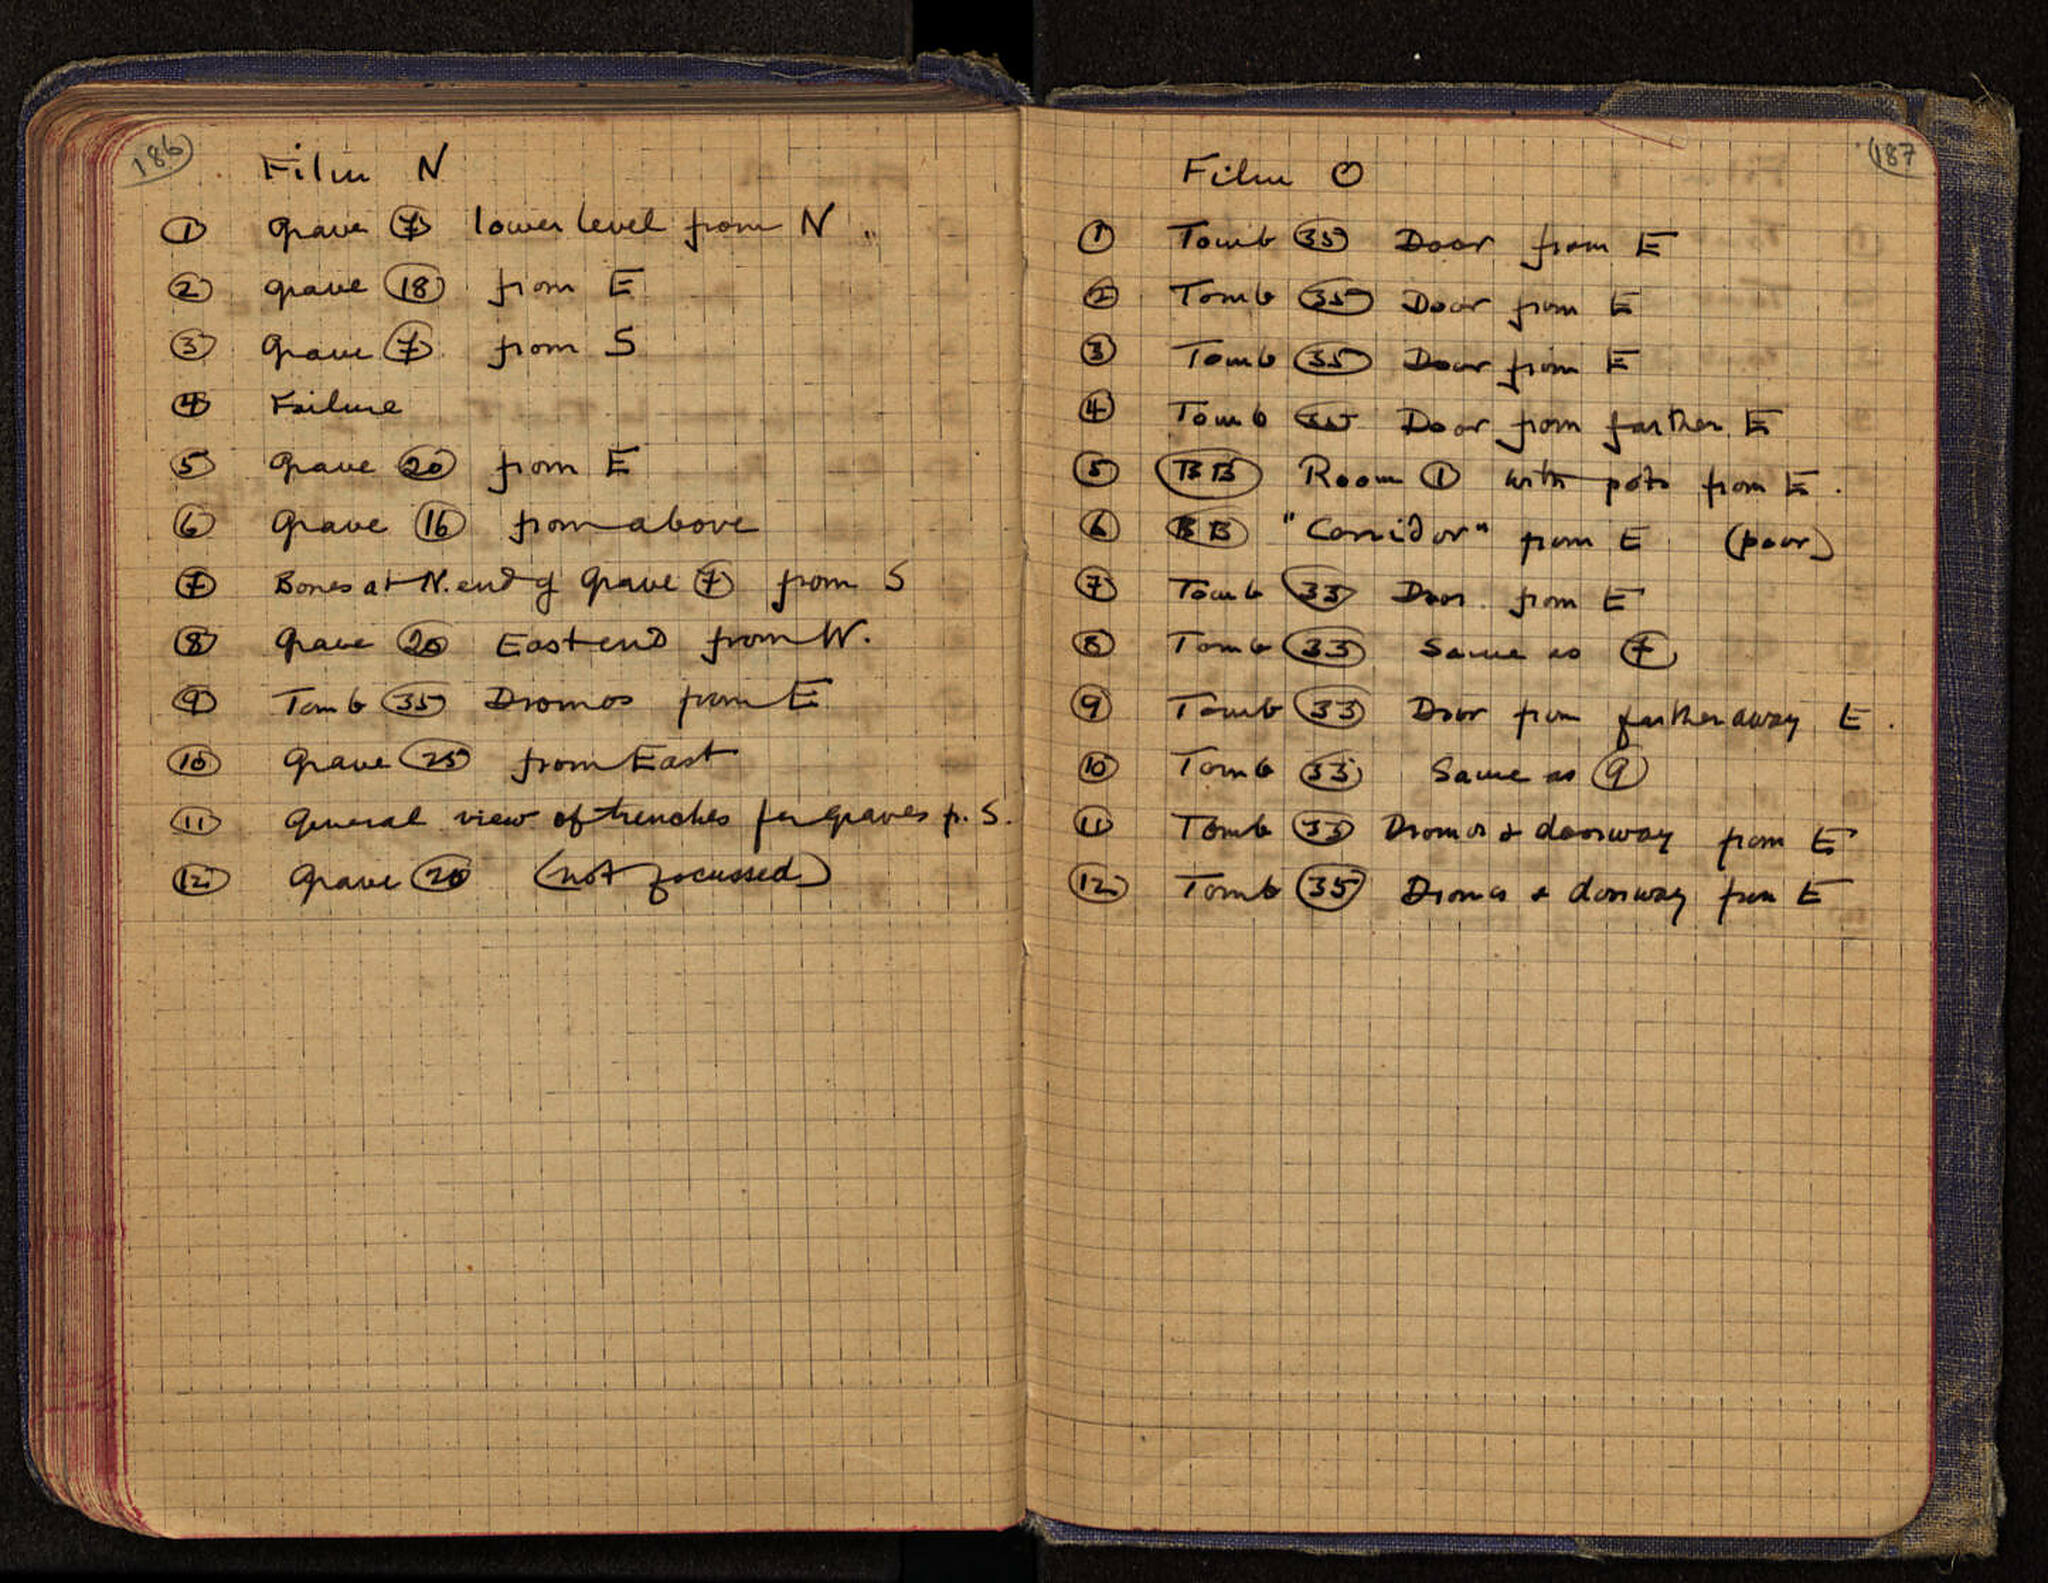 186
Film N
① Grave ⑦ lower level from N.
② Grave ⑱ from E
③ Grave ⑦ from S
④ Failure
⑤ Grave ⑳ from E
⑥ Grave ⑯ from above
⑦ Bones at N. end of Grave ⑦ from S
⑧ Grave ⑳ East end from W.
⑨ Tomb ㉟ Dromos from E
⑩ Grave ㉕ from East
⑪ General view of trenches for graves fr. S.
⑫ Grave ⑳ (not focussed)
187
Film O
① Tomb ㉟ Door from E
② Tomb ㉟ Door from E
③ Tomb ㉟ Door from E
④ Tomb ㉟ Door from farther E
⑤ BB Room ① with pots from E.
⑥ BB "Corridor" from E (poor)
⑦ Tomb ㉝ Door from E
⑧ Tomb ㉝ Same as ⑦
⑨ Tomb ㉝ Door from farther away E.
⑩ Tomb ㉝ Same as ⑨
⑪ Tomb ㉝ Dromos & doorway from E
⑫ Tomb ㉟ Dromos & doorway from E